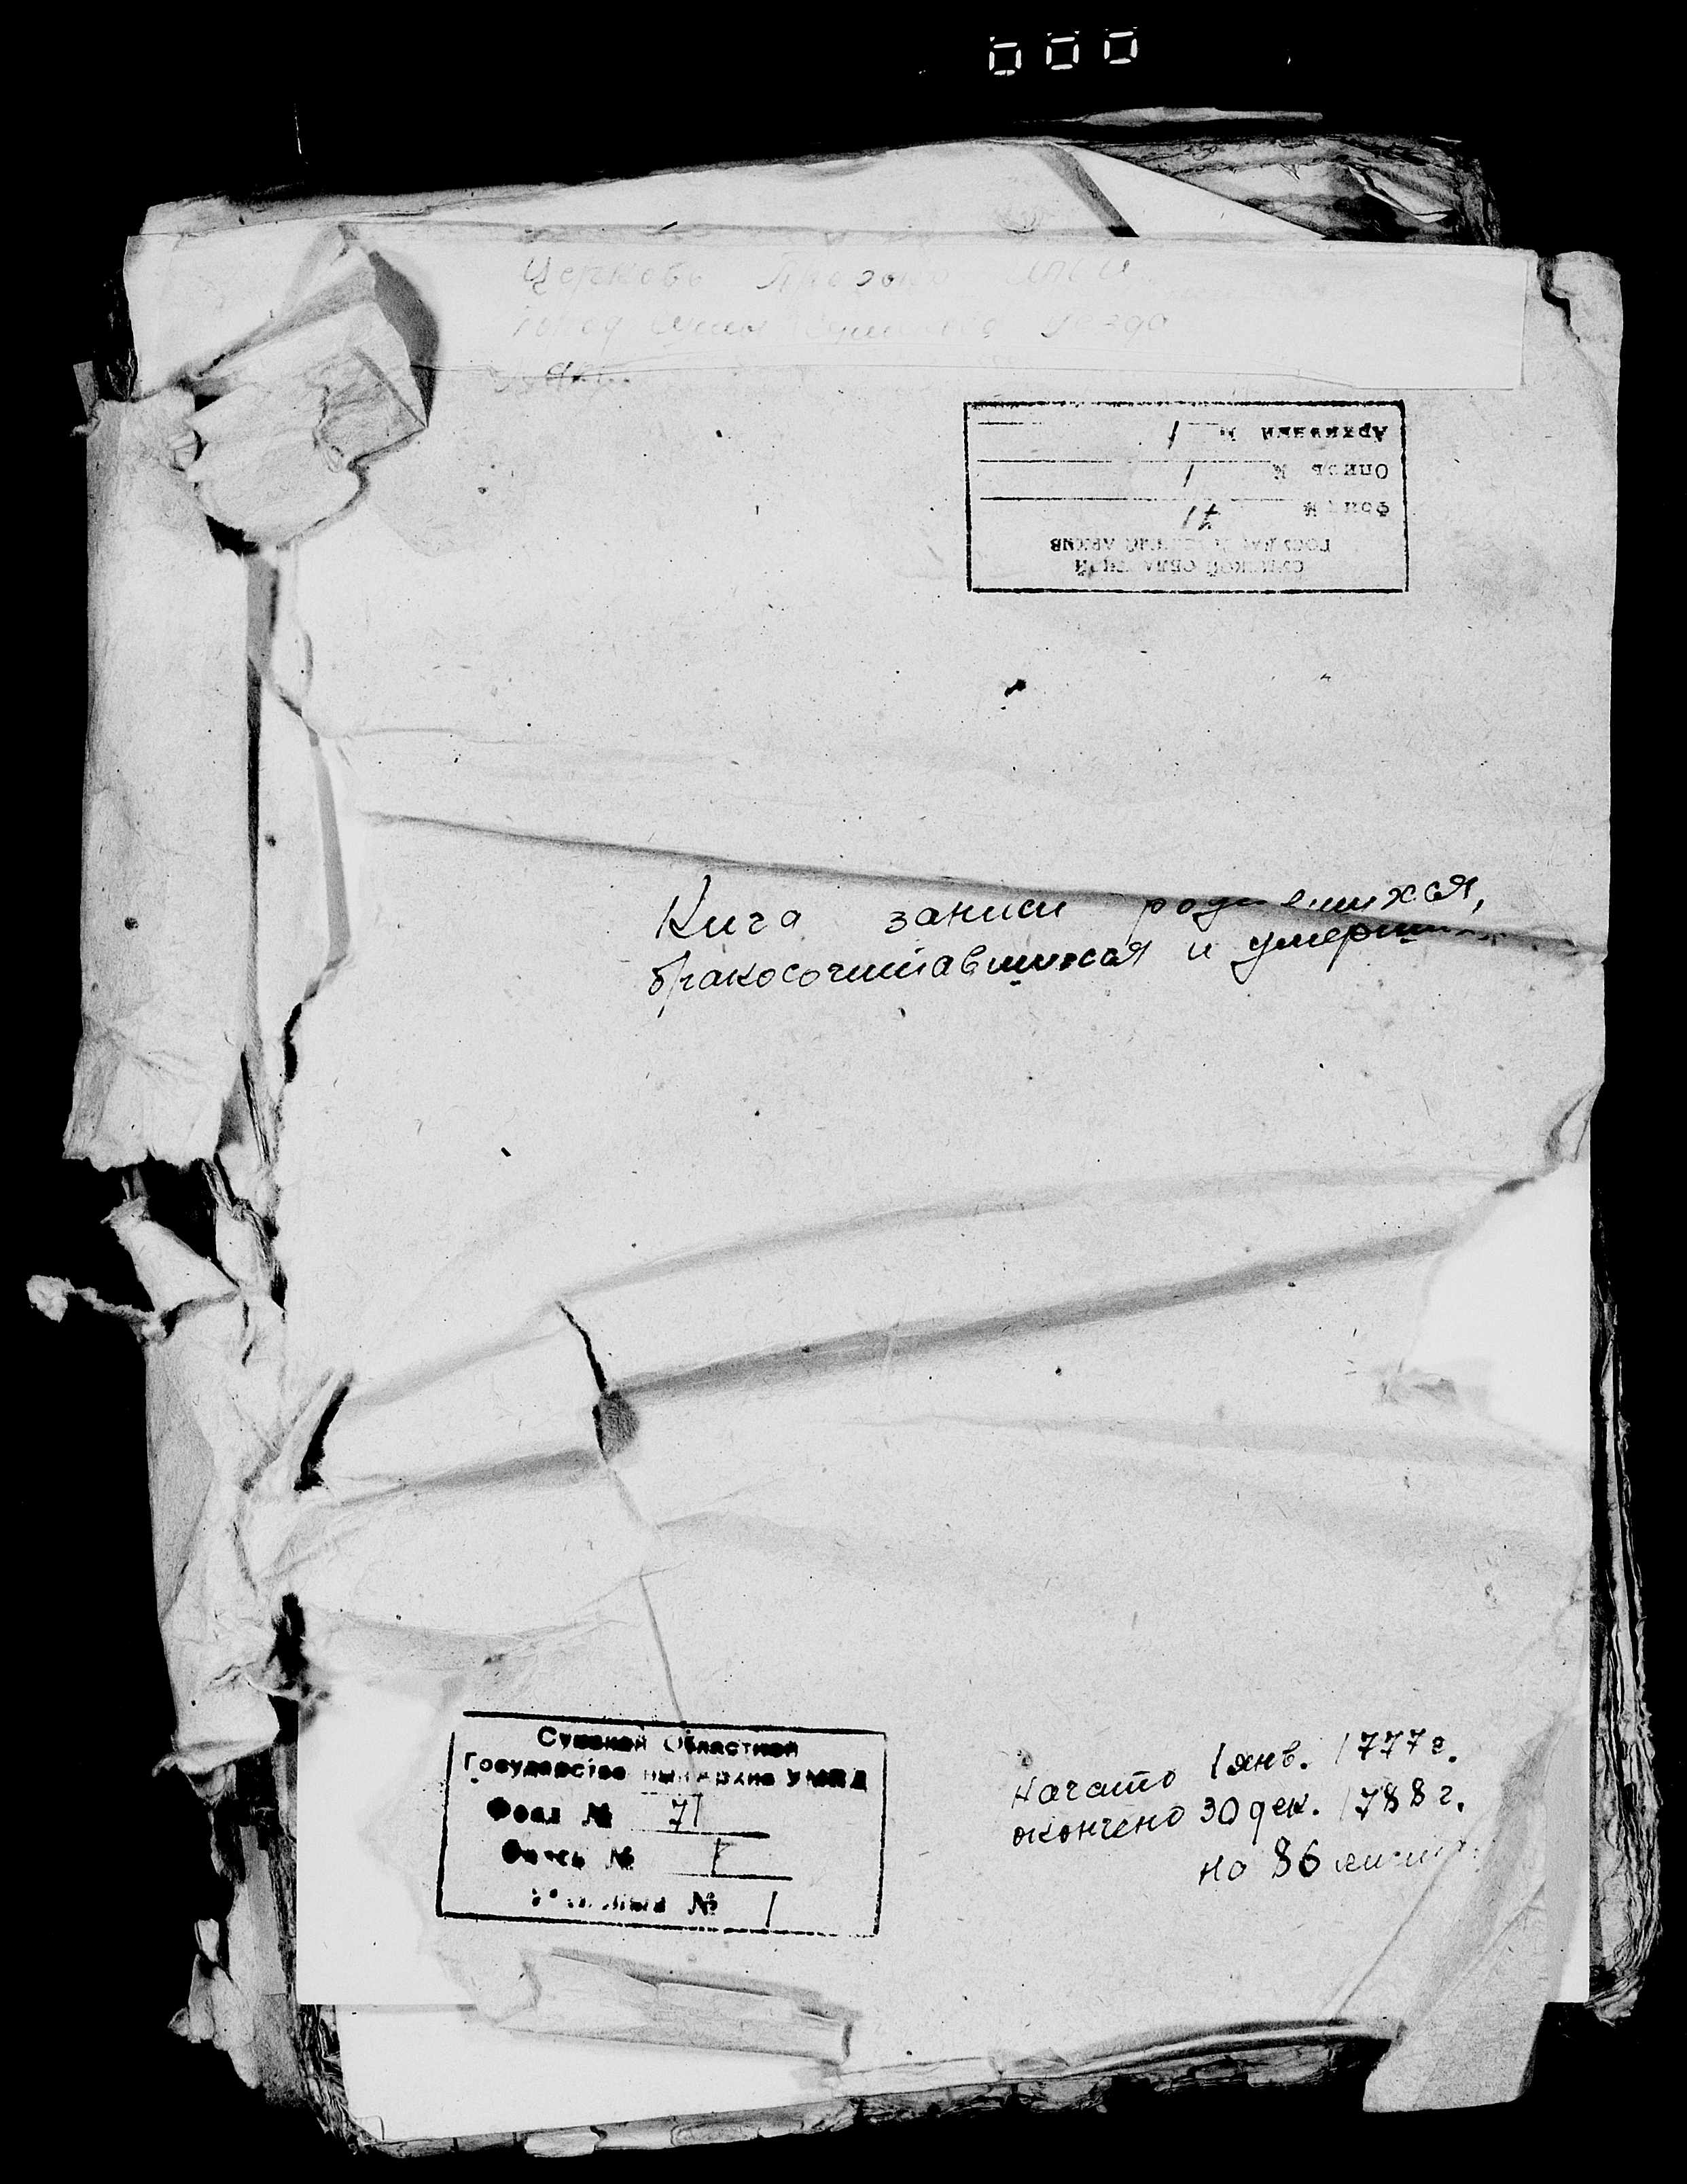 000
Церковь
город Сумы Сумского уезда
Архивный № 1
Опись № 1
Фонд № 71
ГОСУДАРСТВЕННЫЙ АРХИВ
СУМСКОЙ ОБЛАСТНОЙ
Кига записи родившихся,
бракосочитавшихся и умерших
Сумской Областной
Государственный Архив УМВД
Фонд № 71
Опись № 1
№ 1
начато 1 янв. 1777 г.
окончено 30 дек. 1788 г.
на 86 листах